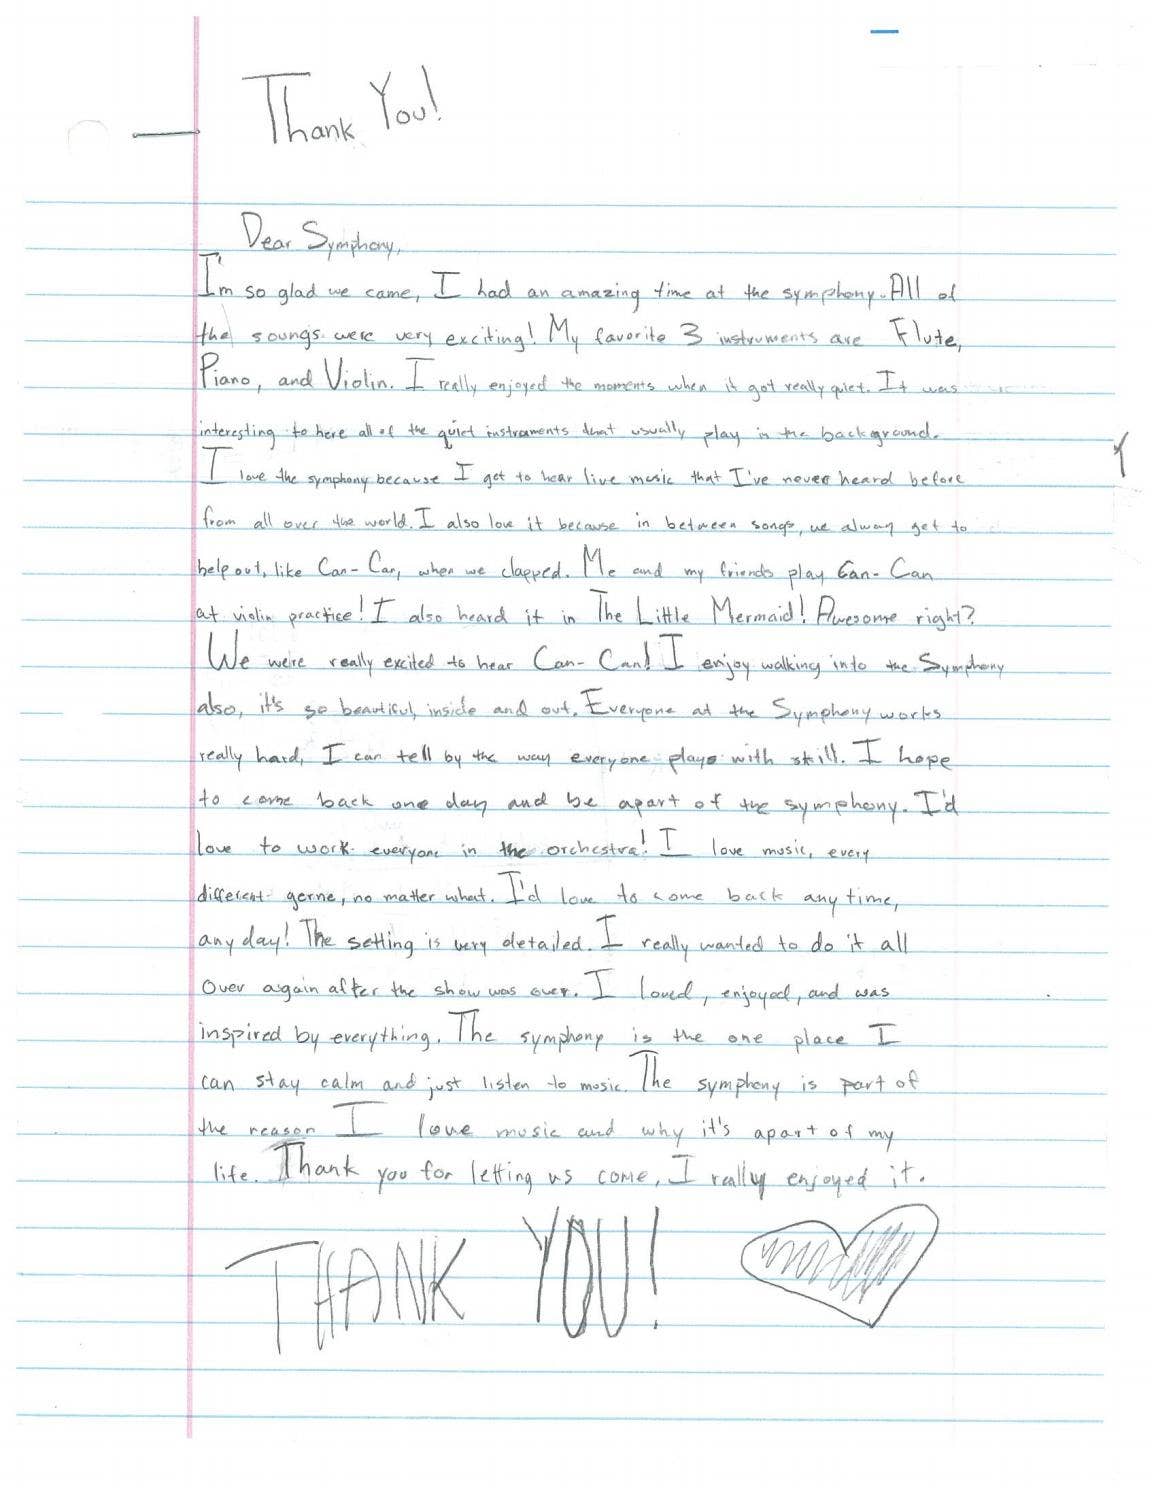 Thank You!
Dear Symphony,
I'm so glad we came, I had an amazing time at the symphony. All of
the soungs were very exciting! My favorite 3 instruments are Flute,
Piano, and Violin. I really enjoyed the moments when it got really quiet. It was
interesting to here all of the quiet instraments that usually play in the background.
I love the symphony because I get to hear live music that I've never heard before
from all over the world. I also love it because in between songs, we alway get to
help out, like Can-Can, when we clapped. Me and my friends play Can-Can
at violin practice! I also heard it in The Little Mermaid! Awesome right?
We were really excited to hear Can-Can! I enjoy walking into the Symphony
also, it's so beautiful, inside and out. Everyone at the Symphony works
really hard, I can tell by the way everyone plays with skill. I hope
to come back one day and be apart of the symphony. I'd
love to work everyone in the orchestra! I love music, every
different gerne, no matter what. I'd love to come back any time,
any day! The setting is very detailed. I really wanted to do it all
over again after the show was over. I loved, enjoyed, and was
inspired by everything. The symphony is the one place I
can stay calm and just listen to music. The symphony is part of
the reason I love music and why it's apart of my
life. Thank you for letting us come, I really enjoyed it.
THANK YOU!